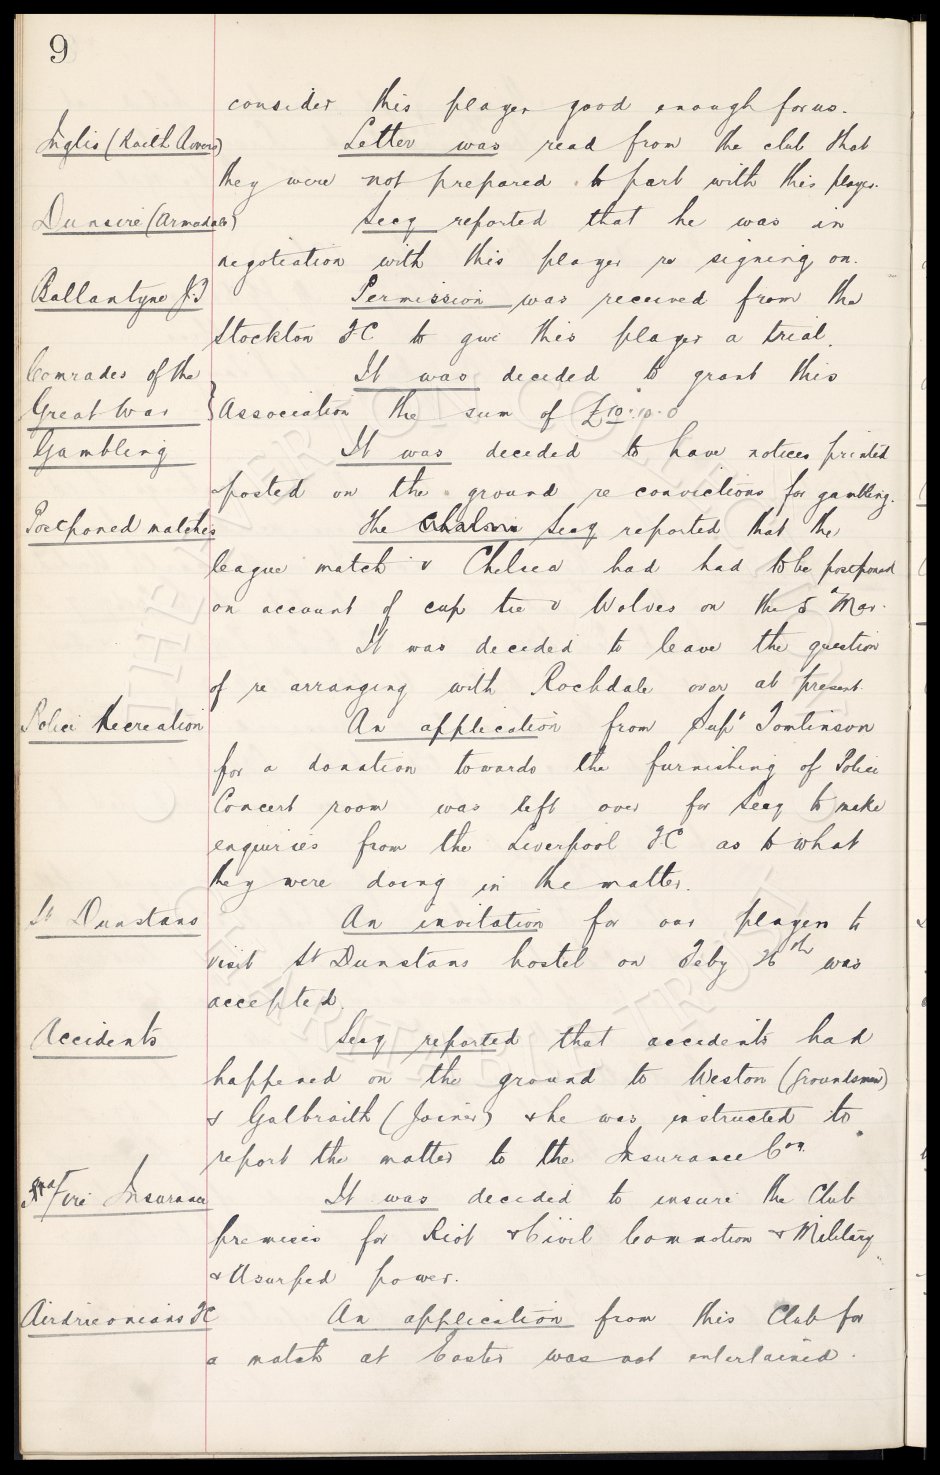 9
consider this player good enough for us.
Inglis (Raith Rovers) Letter was read from the club that
they were not prepared to part with this player.
Dunsire (Armadale) Secy reported that he was in
negotiation with this player re signing on.
Ballantyne J.T Permission was received from the
Stockton FC to give this player a trial.
Comrades of the It was decided to grant this
Great War } Association the sum of £10.10.0
Gambling It was decided to have notices printed
& posted on the ground re convictions for gambling.
Postponed matches The Secy reported that the
league match v Chelsea had had to be postponed
on account of cup tie v Wolves on the 5th Mar.
It was decided to leave the question
of re arranging with Rochdale over at present.
Police Recreation An application from Supt Tomlinson
for a donation towards the furnishing of Police
Concert room was left over for Secy to make
enquiries from the Liverpool FC as to what
they were doing in the matter.
St Dunstans An invitation for our players to
visit St Dunstans hostel on Feby 26th was
accepted.
Accidents Secy reported that accidents had
happened on the ground to Weston (groundsman)
& Galbraith (Joiner) & he was instructed to
report the matter to the Insurance Coy.
Fire Insurance It was decided to insure the Club
premises for Riot & Civil Commotion & Military
& Usurped power.
Airdrieonians FC An application from this Club for
a match at Easter was not entertained.
THE EVERTON COLLECTION
CHARITABLE TRUST